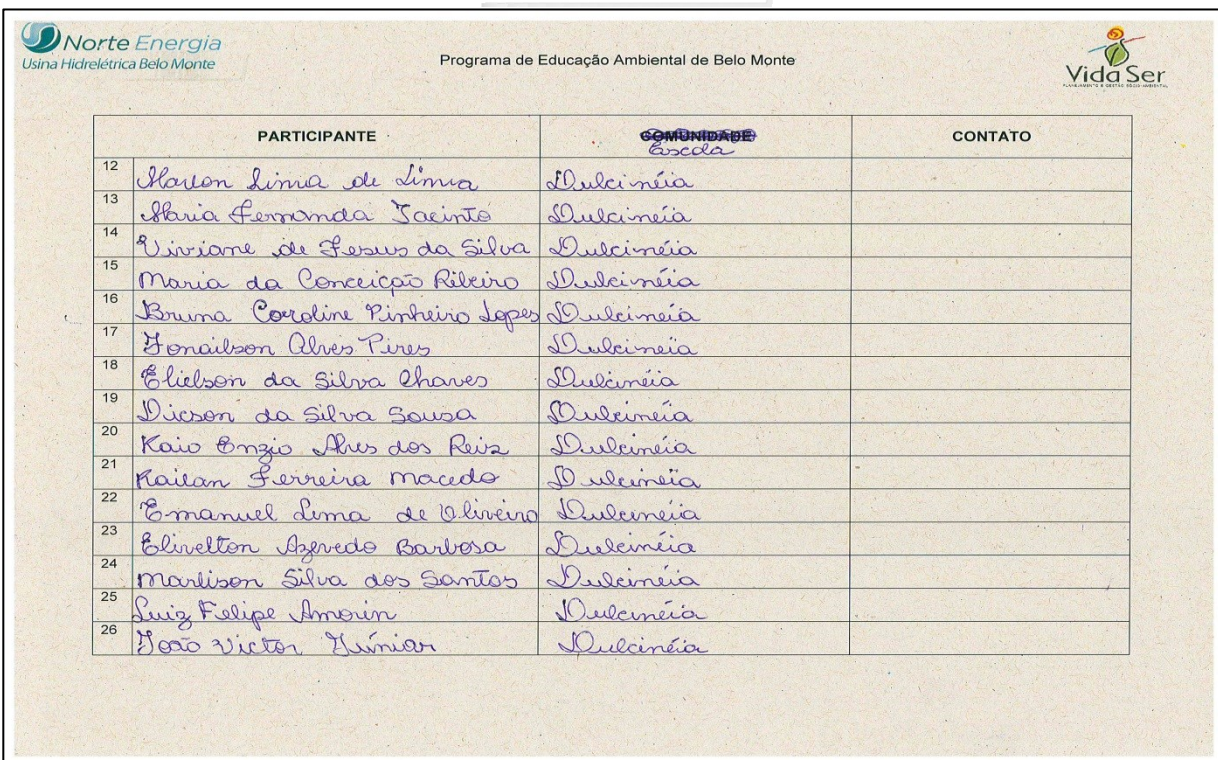 Norte Energia
Usina Hidrelétrica Belo Monte
Programa de Educação Ambiental de Belo Monte
Vida Ser
PLANEJAMENTO E GESTÃO SÓCIO-AMBIENTAL
PARTICIPANTE COMUNIDADE CONTATO
Escola
12 Marlon Lima de Lima Dulcinéia
13 Maria Fernanda Jacinto Dulcinéia
14 Viviane de Jesus da Silva Dulcinéia
15 Maria da Conceição Ribeiro Dulcinéia
16 Bruna Caroline Pinheiro Lopes Dulcinéia
17 Jonailson Alves Pires Dulcinéia
18 Elielson da Silva Chaves Dulcinéia
19 Dicson da Silva Sousa Dulcinéia
20 Kaio Enzio Alves dos Reis Dulcinéia
21 Kailan Ferreira Macedo Dulcinéia
22 Emanuel Lima de Oliveira Dulcinéia
23 Elivelton Azevedo Barbosa Dulcinéia
24 Marlison Silva dos Santos Dulcinéia
25 Luiz Felipe Amorin Dulcinéia
26 João Victor Júnior Dulcinéia